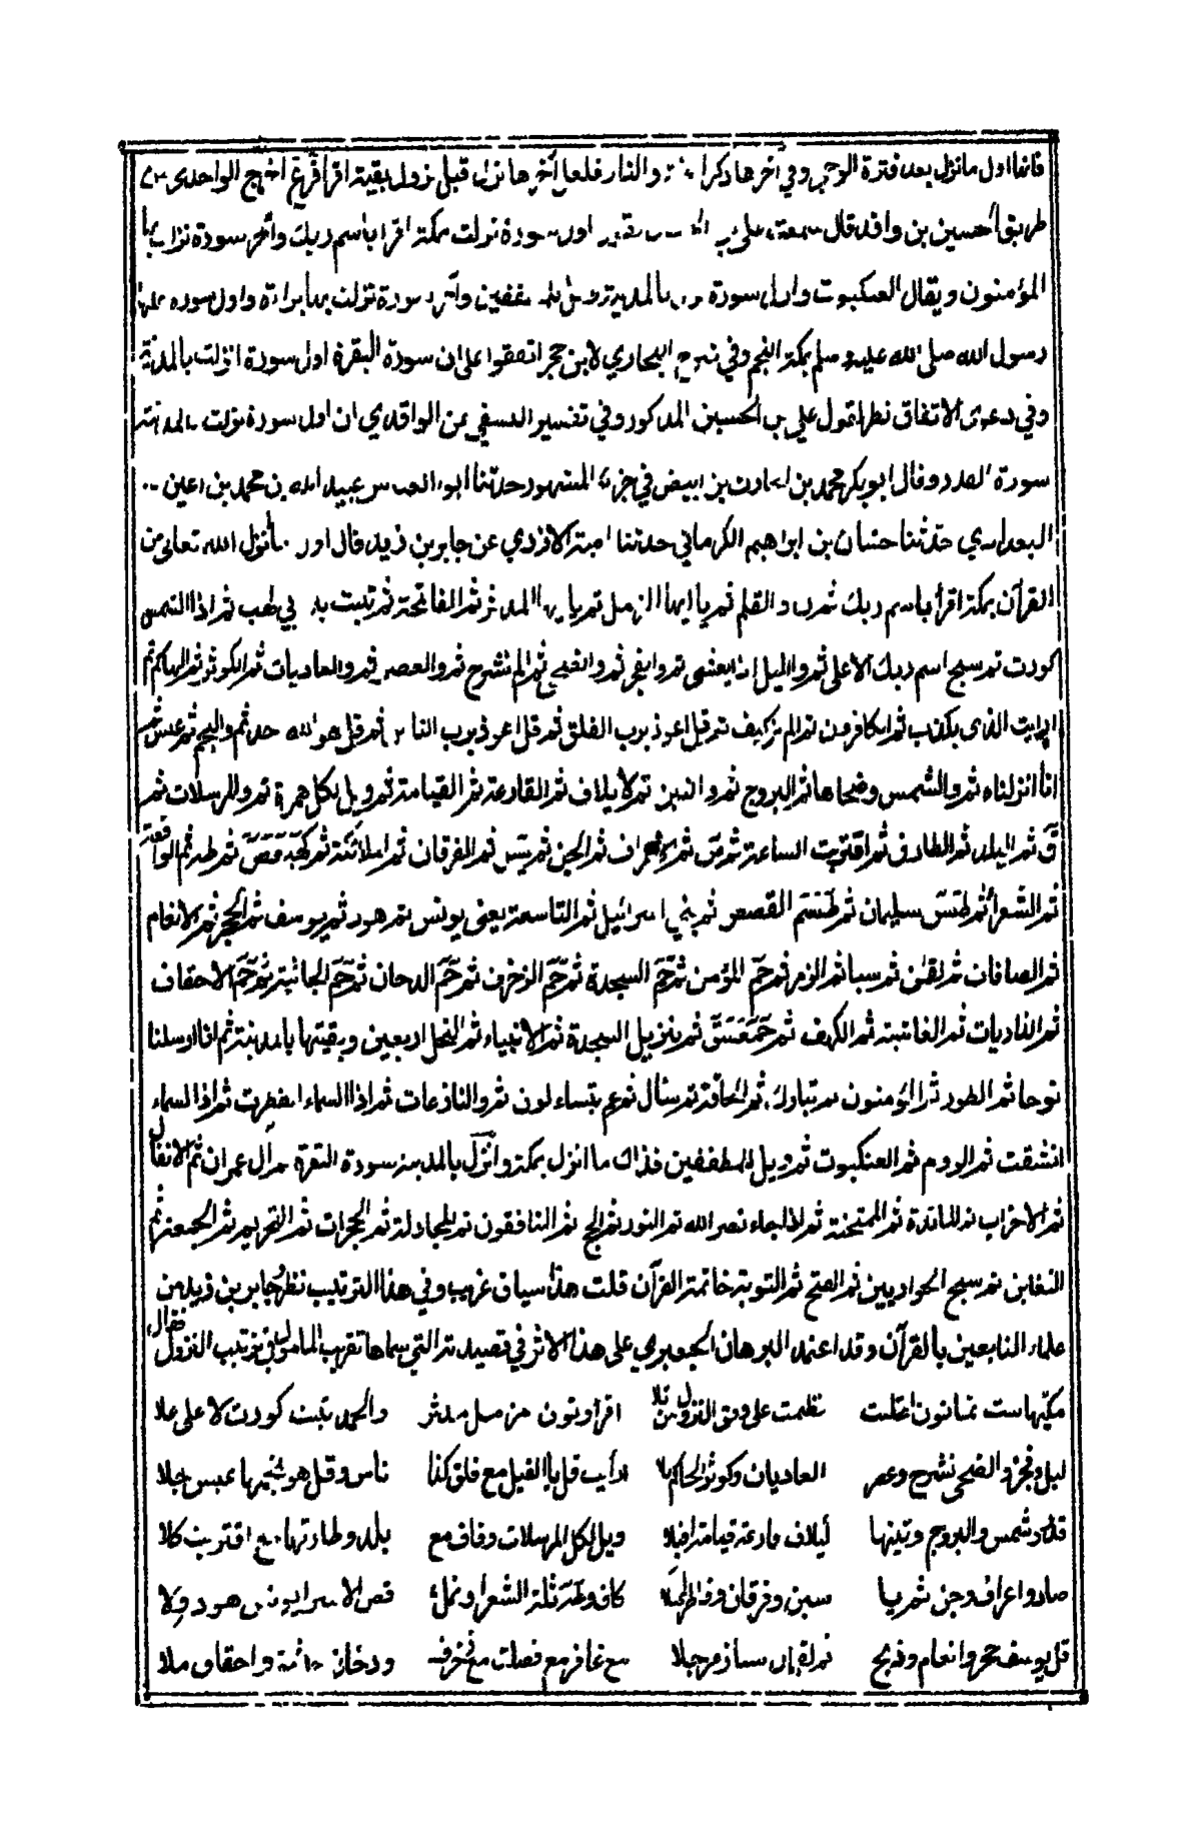 فانها اول ما نزل بعد فترة الوحي وفي آخرها ذكر الجنة والنار فلعل آخرها نزل قبل نزول بقية اقرأ فرع اخرج الواحدي من
طريق الحسين بن واقد قال سمعت علي بن الحسين يقول اول سورة نزلت بمكة اقرا باسم ربك وآخر سورة نزلت بها
المؤمنون ويقال العنكبوت واول سورة نزلت بالمدينة ويل للمطففين وآخر سورة نزلت بها براءة واول سورة علنها
رسول الله صلى الله عليه وسلم بمكة النجم وفي شرح البخاري لابن حجر اتفقوا على ان سورة البقرة اول سورة انزلت بالمدينة
وفي دعوى الاتفاق نظر لقول علي بن الحسين المذكور وفي تفسير النسفي عن الواقدي ان اول سورة نزلت بالمدينة
سورة القدر وقال ابو بكر محمد بن الحارث بن ابيض في جزئه المشهور حدثنا ابو العباس عبيد الله بن محمد بن اعين
البغدادي حدثنا حسان بن ابراهيم الكرماني حدثنا امية الازدي عن جابر بن زيد قال اول ما نزل الله تعالى من
القرآن بمكة اقرأ باسم ربك ثم ن والقلم ثم يا ايها المزمل ثم يا ايها المدثر ثم الفاتحة ثم تبت يدا ابي لهب ثم اذا الشمس
كورت ثم سبح اسم ربك الاعلى ثم والليل اذا يغشى ثم والفجر ثم والضحى ثم الم نشرح ثم والعصر ثم والعاديات ثم الكوثر ثم الهاكم ثم
ارايت الذي يكذب ثم الكافرون ثم الم تر كيف ثم قل اعوذ برب الفلق ثم قل اعوذ برب الناس ثم قل هو الله احد ثم والنجم ثم عبس ثم
انا انزلناه ثم والشمس وضحاها ثم البروج ثم والتين ثم لايلاف ثم القارعة ثم القيامة ثم ويل لكل همزة ثم والمرسلات ثم
ق ثم البلد ثم الطارق ثم اقتربت الساعة ثم ص ثم الاعراف ثم الجن ثم يس ثم الفرقان ثم الملائكة ثم كهيعص ثم طه ثم الواقعة
ثم الشعرا ثم طس سليمان ثم طسم القصص ثم بني اسرائيل ثم التاسعة يعني يونس ثم هود ثم يوسف ثم الحجر ثم الانعام
ثم الصافات ثم لقمن ثم سبا ثم الزمر ثم حم المؤمن ثم حم السجدة ثم حم الزخرف ثم حم الدخان ثم حم الجاثية ثم حم الاحقاف
ثم الذاريات ثم الغاشية ثم الكهف ثم حمعسق ثم تنزيل السجدة ثم الانبياء ثم النحل اربعين وبقيتها بالمدينة ثم انا ارسلنا
نوحا ثم الطور ثم المؤمنون ثم تبارك ثم الحاقة ثم سئال ثم عم يتساءلون ثم والنازعات ثم اذا السماء انفطرت ثم اذا السماء
انشقت ثم الروم ثم العنكبوت ثم ويل للمطففين فذاك ما انزل بمكة وانزل بالمدينة سورة البقرة ثم آل عمران ثم الانفال
ثم الاحزاب ثم المائدة ثم الممتحنة ثم اذا جاء نصر الله ثم النور ثم الحج ثم المنافقون ثم المجادلة ثم الحجرات ثم التحريم ثم الجمعة ثم
التغابن ثم سبح الحواريين ثم الفتح ثم التوبة خاتمة القرآن قلت هذا سياق غريب وفي هذا الترتيب نظر وجابر بن زيد من
علماء التابعين بالقرآن وقد اعتمد البرهان الجعبري على هذا الاثر في قصيدته التي سماها تقريب المامول في ترتيب النزول فقال
مكيها ست ثمانون اعتلت نظمت على وفق النزول لمن تلا اقرا ونون مزمل مدثر والحمد تبت كورت الاعلى علا
ليل وفجر والضحى شرح وعصر العاديات وكوثر الهاكم تلا ارأيت قل بالفيل مع فلق كذا ناس وقل هو نجمها عبس جلا
قدر وشمس والبروج وتينها لئيلاف قارعة قيامة اقبلا ويل لكل المرسلات وقاف مع بلد وطارقها مع اقتربت كلا
صاد واعراف وجن ثم يا سين وفرقان وفاطر اعتلا كاف وطه ثلة الشعرا ونمل قص الاسرا يونس هود ولا
قل يوسف حجر وانعام وذبح ثم لقمان سبا زمر جلا مع غافر مع فصلت مع زخرف ودخان جاثية واحقاف ملا